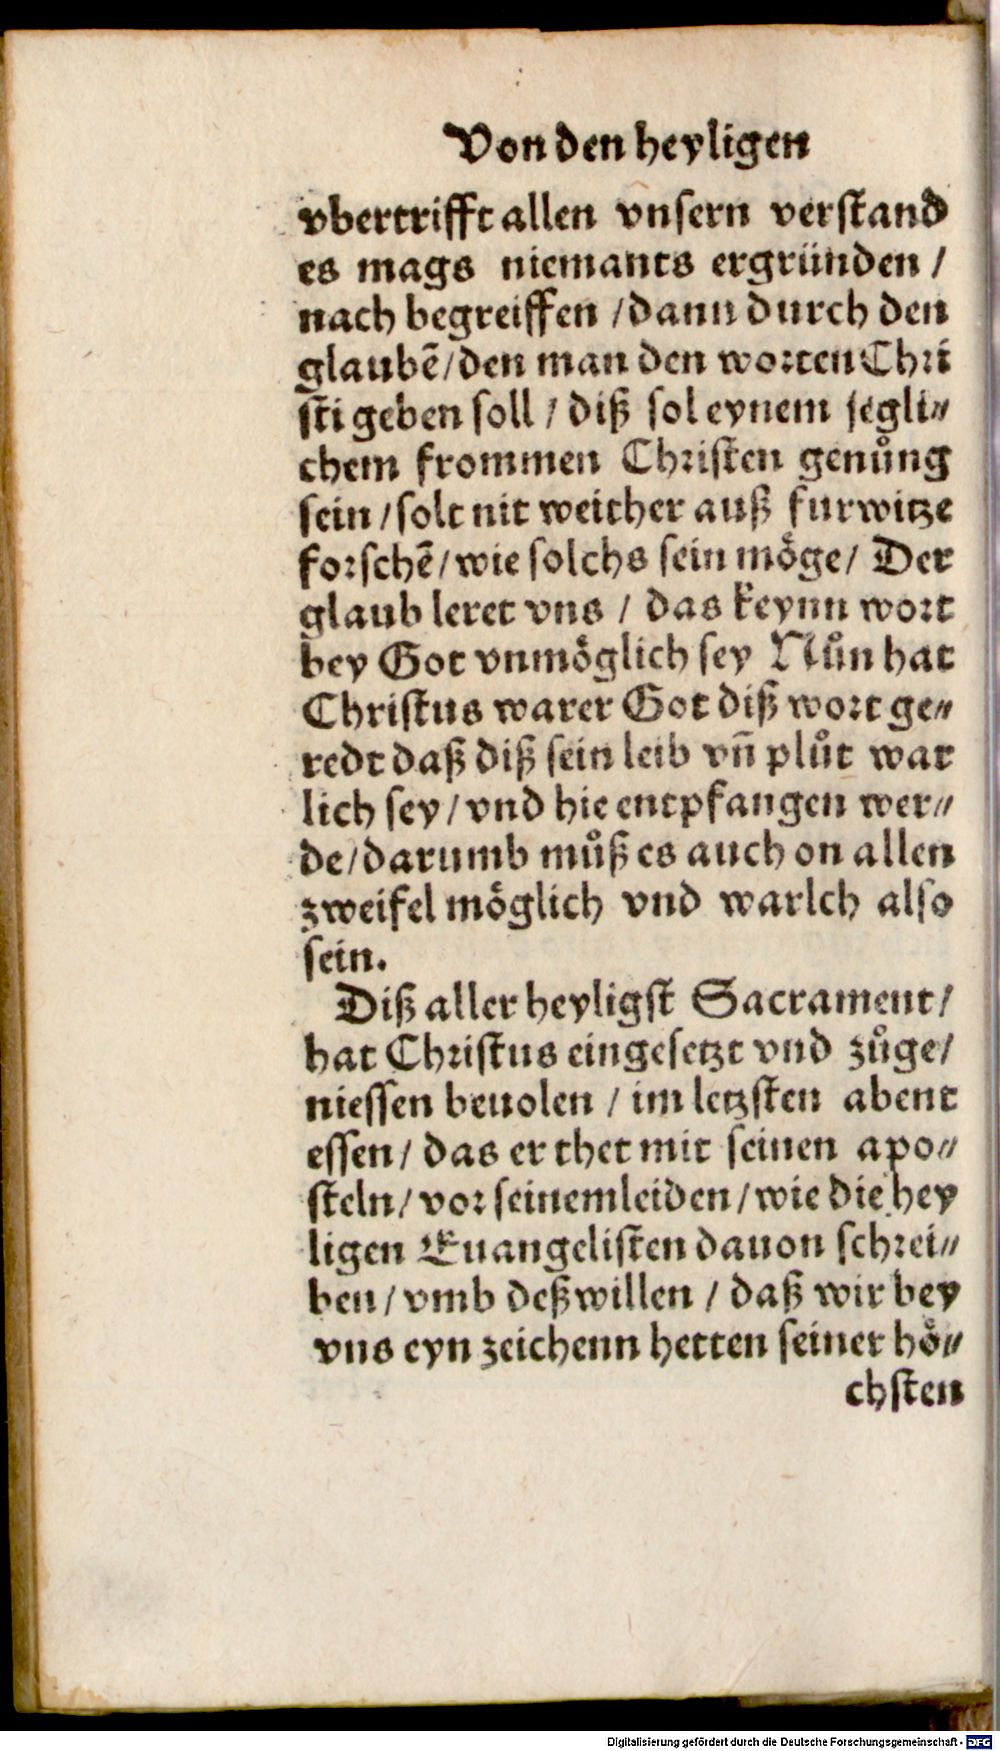 Von den heyligen
vbertrifft allen vnsern verstand
es mags niemants ergründen /
nach begreiffen / dann durch den
glaubẽ / den man den worten Chri
sti geben soll / diß sol eynem jegli⸗
chem frommen Christen genůng
sein / solt nit weither auß furwitze
forschẽ / wie solchs sein möge / Der
glaub leret vns / das keynn wort
bey Got vnmöglich sey Nůn hat
Christus warer Got diß wort ge⸗
redt daß diß sein leib vñ plůt war
lich sey / vnd hie entpfangen wer⸗
de / darumb můß es auch on allen
zweifel möglich vnd warlch also
sein.
Diß aller heyligst Sacrament /
hat Christus eingesetzt vnd zůge /
niessen beuolen / im letzsten abent
essen / das er thet mit seinen apo⸗
steln / vor seinem leiden / wie die hey
ligen Euangelisten dauon schrei⸗
ben / vmb deßwillen / daß wir bey
vns eyn zeichenn hetten seiner hö⸗
chsten
Digitalisierung gefördert durch die Deutsche Forschungsgemeinschaft - DFG